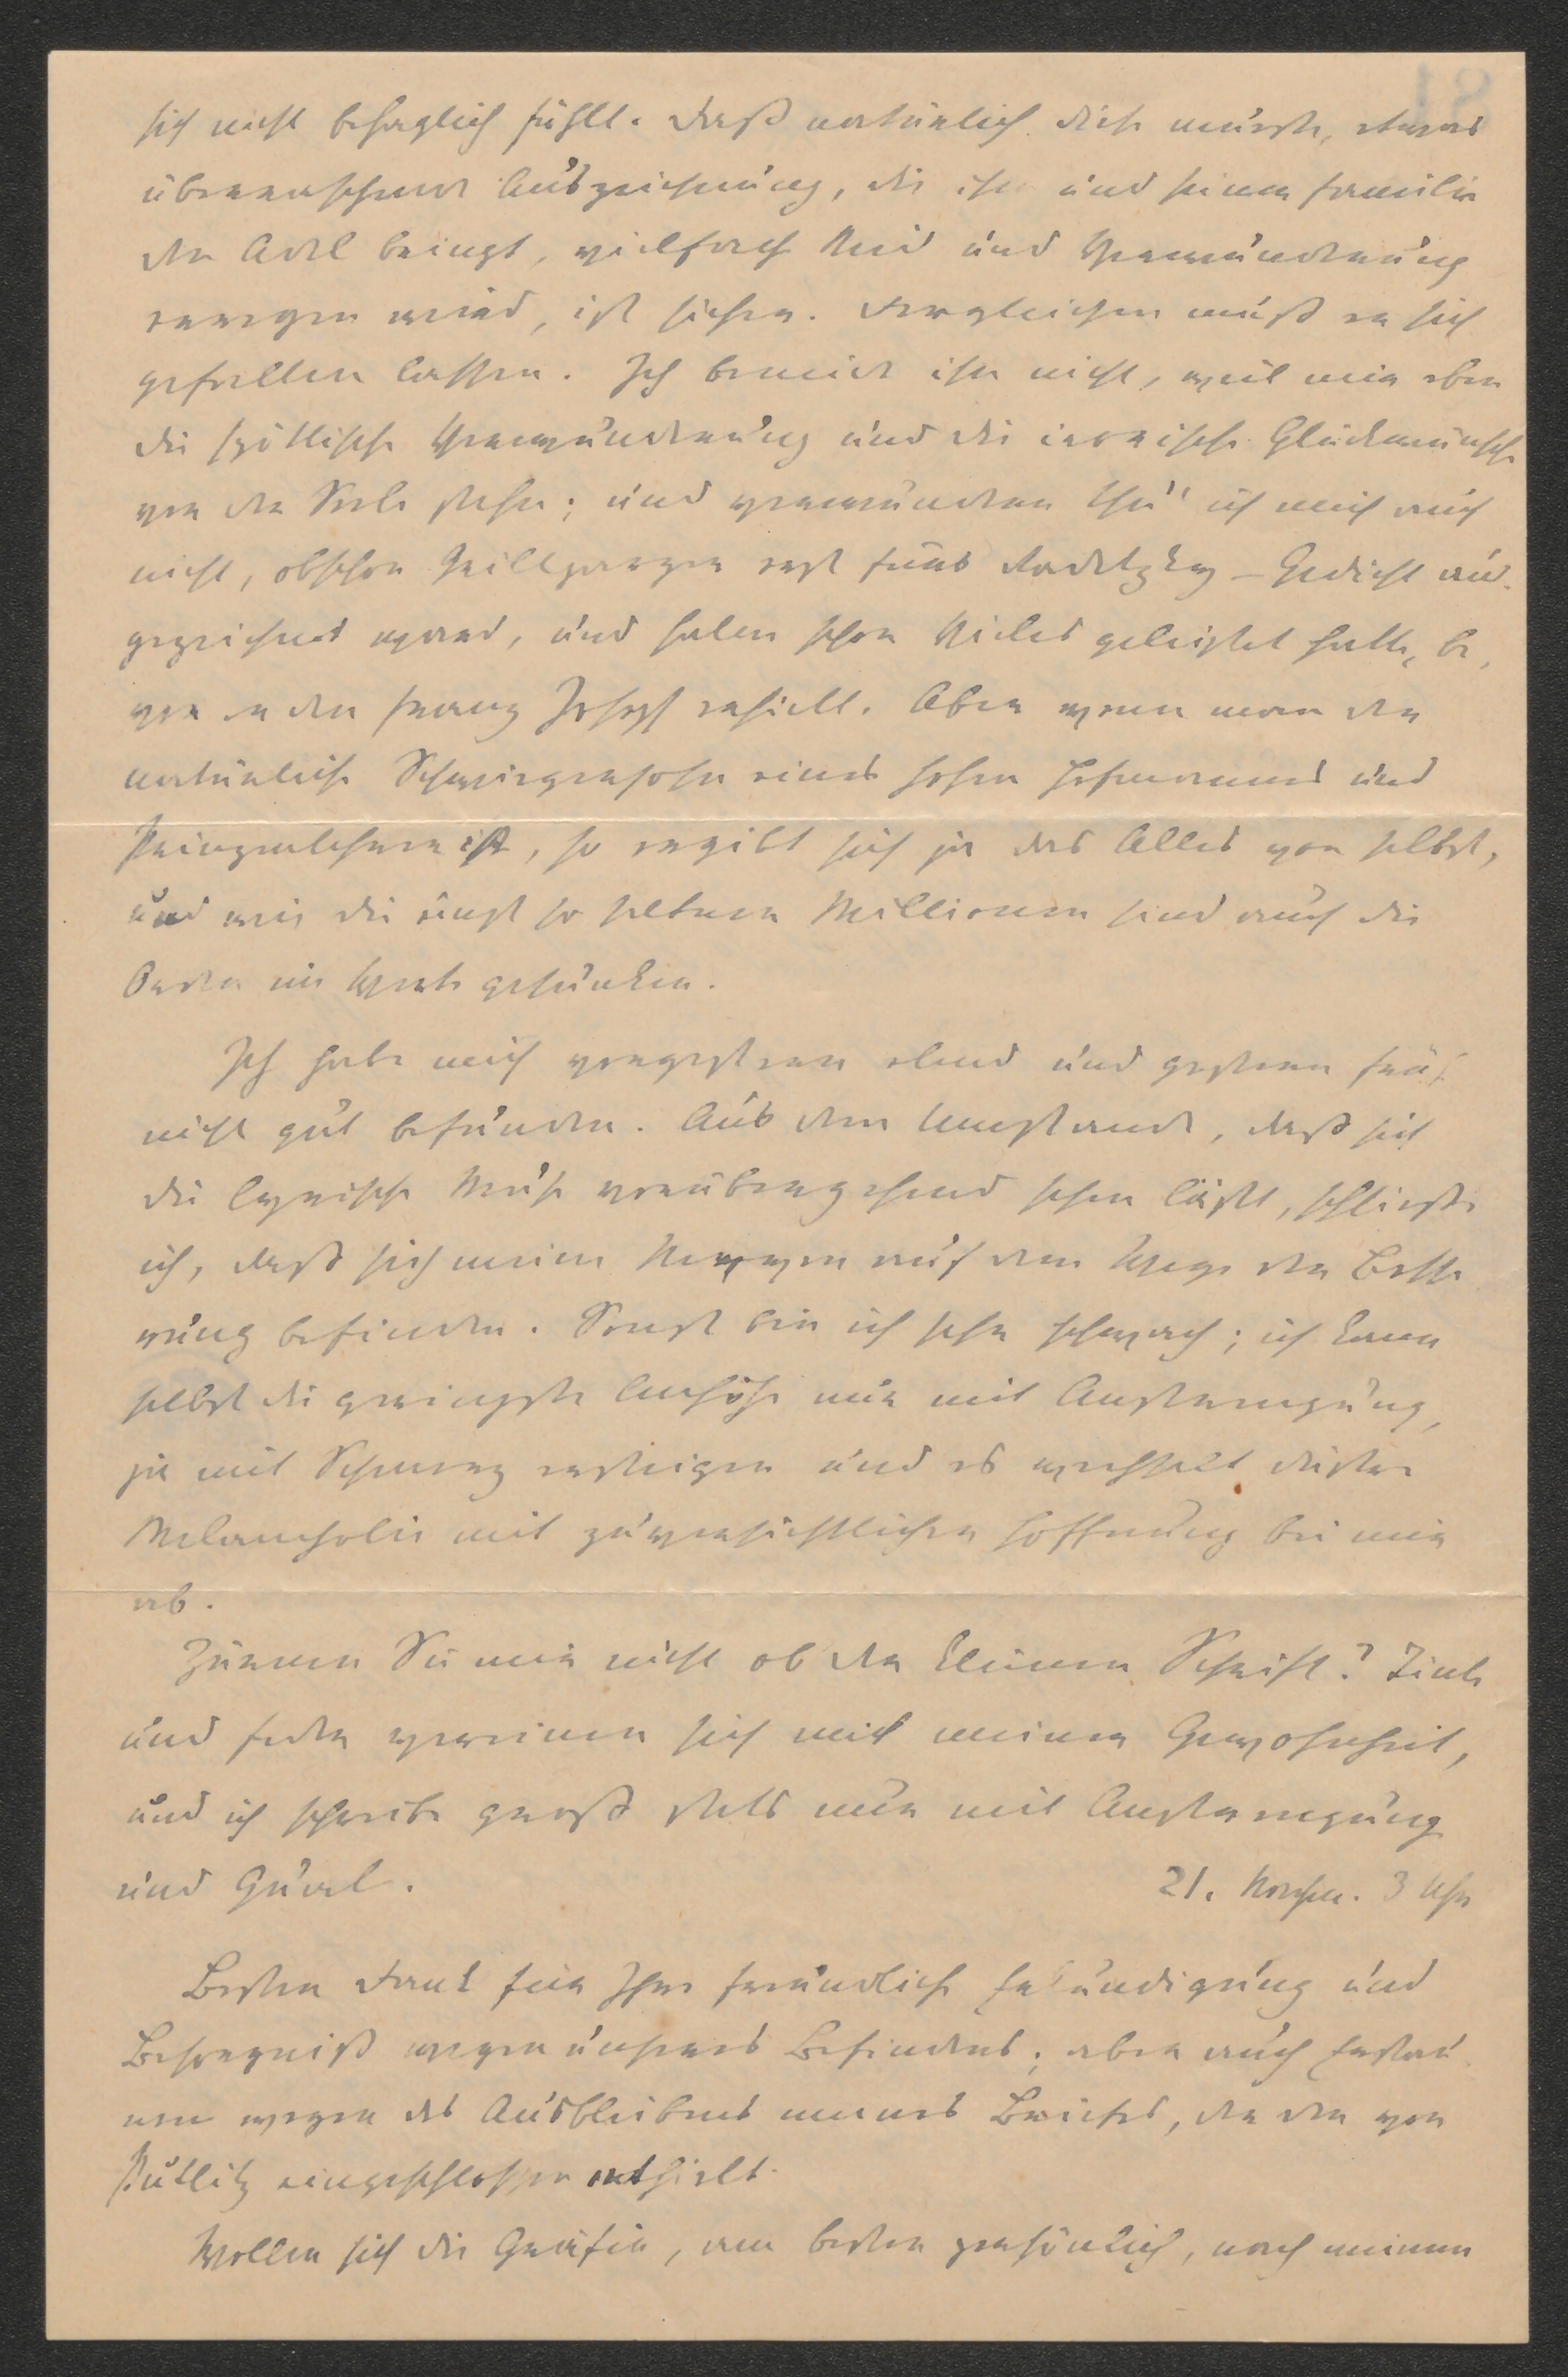 sich nicht behaglich fühlt. Daß natürlich diese neueste, etwas
überraschende Auszeichnung, die ihm und seiner Familie
den Adel bringt, vielfach Neid und Verwunderung
erregen wird, ist sicher. Dergleichen muß er sich
gefallen lassen. Ich beneide ihn nicht, weil mir eben
die spöttische Verwunderung und die ironische Glückwünsche
vor der Seele stehen; und verwundern thu' ich mich auch
nicht, obschon Grillparzer erst fürs Radetzky-Gedicht aus-
gezeichnet ward, und Halm schon Vieles geleistet hatte, be-
vor er den Franz Joseph erhielt. Aber wenn man der
natürliche Schwiegersohn eines hohen Hofmannes und
Prinzenlehrers ist, so ergibt sich ja das Alles von selbst,
und wie die einst so seltenen Millionen sind auch die
Orden im Werte gesunken.
Ich habe mich vorgestern abend und gestern früh
nicht gut befunden. Aus dem Umstande, daß sich
die lyrische Muse vorübergehend sehen läßt, schließe
ich, daß sich meine Nerven auf dem Wege der Besse-
rung befinden. Sonst bin ich sehr schwach; ich kann
selbst die geringste Anhöhe nur mit Anstrengung,
ja mit Schmerz ersteigen und es wechselt düstere
Melancholie mit zuversichtlicher Hoffnung bei mir
ab.
Zürnen Sie mir nicht ob der kleinen Schrift? Tinte
und Feder vereinen sich mit meiner Gewohnheit,
und ich schreibe groß stets nur mit Anstrengung
und Qual.
21. Novber. 3 Uhr
Besten Dank für Ihre freundliche Erkundigung und
Besorgniß wegen unseres Befindens; aber auch Erstau-
nen wegen des Ausbleibens meines Briefes, der den von
Putlitz eingeschlossen enthielt.
Wollen sich die Gräfin, am besten persönlich, nach meinem